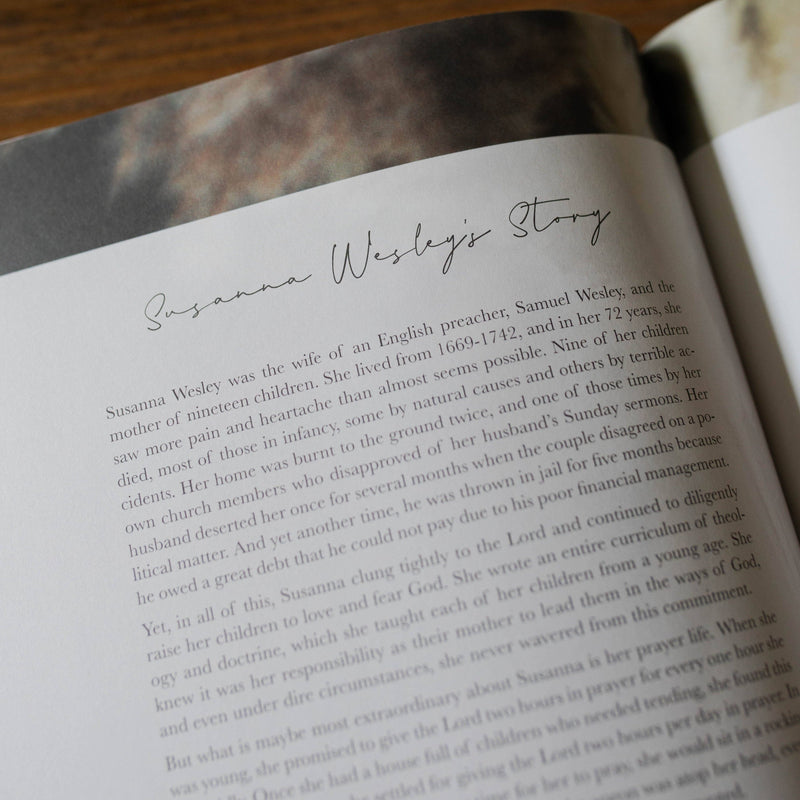 Susanna Wesley's Story
Susanna Wesley was the wife of an English preacher, Samuel Wesley, and the
mother of nineteen children. She lived from 1669-1742, and in her 72 years, she
saw more pain and heartache than almost seems possible. Nine of her children
died, most of those in infancy, some by natural causes and others by terrible ac-
cidents. Her home was burnt to the ground twice, and one of those times by her
own church members who disapproved of her husband's Sunday sermons. Her
husband deserted her once for several months when the couple disagreed on a po-
litical matter. And yet another time, he was thrown in jail for five months because
he owed a great debt that he could not pay due to his poor financial management.
Yet, in all of this, Susanna clung tightly to the Lord and continued to diligently
raise her children to love and fear God. She wrote an entire curriculum of theol-
ogy and doctrine, which she taught each of her children from a young age. She
knew it was her responsibility as their mother to lead them in the ways of God,
and even under dire circumstances, she never wavered from this commitment.
But what is maybe most extraordinary about Susanna is her prayer life. When she
was young, she promised to give the Lord two hours in prayer for every one hour she
Once she had a house full of children who needed tending, she found this
she settled for giving the Lord two hours per day in prayer. In
time for her to pray, she would sit in a rockin
apron was atop her head,